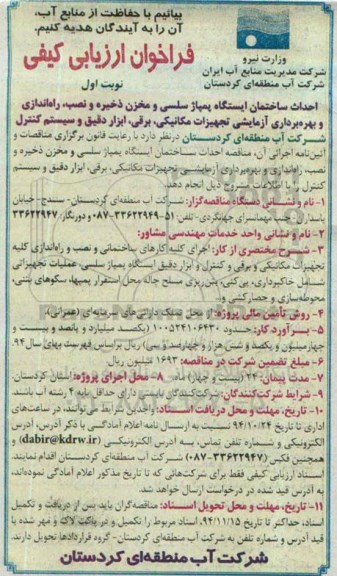 بیائیم با حفاظت از منابع آب،
آن را به آیندگان هدیه کنیم.
فراخوان ارزیابی کیفی
نوبت اول
وزارت نیرو
شرکت مدیریت منابع آب ایران
شرکت آب منطقه‌ای کردستان
احداث ساختمان ایستگاه پمپاژ سلسی و مخزن ذخیره و نصب، راه‌اندازی
و بهره‌برداری آزمایشی تجهیزات مکانیکی، برقی، ابزار دقیق و سیستم کنترل
شرکت آب منطقه‌ای کردستان درنظر دارد با رعایت قانون برگزاری مناقصات و
آئین‌نامه اجرائی آن، مناقصه احداث ساختمان ایستگاه پمپاژ سلسی و مخزن ذخیره و
نصب، راه‌اندازی و بهره‌برداری آزمایشی تجهیزات مکانیکی، برقی، ابزار دقیق و سیستم
کنترل را با اطلاعات مشروح ذیل انجام دهد.
۱- نام و نشانی دستگاه مناقصه‌گزار: شرکت آب منطقه‌ای کردستان- سنندج- خیابان
پاسداران- جنب مهمانسرای جهانگردی- تلفن ۵۱-۳۳۶۲۲۹۴۹-۰۸۷ و دورنگار ۳۳۶۲۲۹۴۷
۲- نام و نشانی واحد خدمات مهندسی مشاور:
۳- شرح مختصری از کار: اجرای کلیه کارهای ساختمانی و نصب و راه‌اندازی کلیه
تجهیزات مکانیکی و برقی و کنترل و ابزار دقیق ایستگاه پمپاژ سلسی، عملیات تجهیزاتی
شامل خاکبرداری، پی‌کنی، بتن‌ریزی مسلح چاله محل استقرار پمپها، سکوهای بتنی،
محوطه‌سازی و حصارکشی و...
۴- روش تأمین مالی پروژه: از محل تملک دارائی‌های سرمایه‌ای (عمرانی).
۵- برآورد کار: حدود ۱۰۰۵۲۴۱۰۶۴۳۰ (یکصد میلیارد و پانصد و بیست و
چهار میلیون و یکصد و شش هزار و چهارصد و سی) ریال براساس فهرست بهای سال ۹۴.
۶- مبلغ تضمین شرکت در مناقصه: ۱۶۹۳ میلیون ریال.
۷- مدت پیمان: ۲۴ (بیست و چهار) ماه. ۸- محل اجرای پروژه: استان کردستان.
۹- شرایط شرکت‌کنندگان: شرکت‌کنندگان بایستی دارای حداقل پایه ۴ رشته آب باشند.
۱۰- تاریخ، مهلت و محل دریافت اسناد: واجدین شرایط می‌توانند، در ساعت‌های
اداری تا تاریخ ۹۴/۱۰/۲۴ نسبت به ارسال نامه اعلام آمادگی با ذکر آدرس، آدرس
الکترونیکی و شماره تلفن تماس، به آدرس الکترونیکی (dabir@kdrw.ir) و
همچنین فکس (۳۳۶۲۲۹۴۷-۰۸۷) شرکت آب منطقه‌ای کردستان اقدام نمایند.
اسناد ارزیابی کیفی فقط برای شرکت‌هائی که تا تاریخ مذکور اعلام آمادگی نموده‌اند،
به آدرس قید شده در درخواست ارسال خواهد شد.
۱۱- تاریخ، مهلت و محل تحویل اسناد: مناقصه‌گران باید پس از دریافت و تکمیل
اسناد، حداکثر تا تاریخ ۹۴/۱۱/۱۵ اسناد مربوط را تکمیل و در پاکت لاک و مهر شده با
قید آدرس و شماره تلفن به شرکت آب منطقه‌ای کردستان- گروه قراردادها تحویل دارند.
شرکت آب منطقه‌ای کردستان